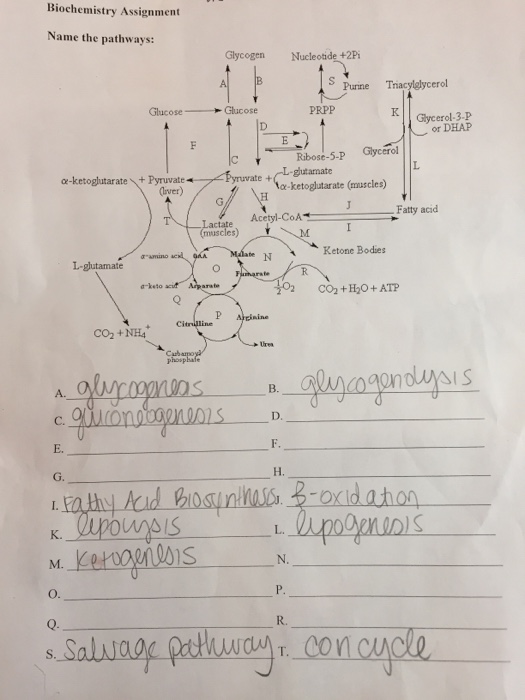 Biochemistry Assignment
Name the pathways:
Glycogen Nucleotide +2Pi
A B S Purine Triacylglycerol
Glucose Glucose PRPP K Glycerol-3-P
or DHAP
D
F E
Ribose-5-P Glycerol
C L-glutamate L
α-ketoglutarate + Pyruvate Pyruvate + α-ketoglutarate (muscles)
(liver)
G H J
T Lactate Acetyl-CoA Fatty acid
(muscles) I
M
α-amino acid OAA Malate N Ketone Bodies
L-glutamate O Fumarate R
α-keto acid Aspartate ½O2 CO2 + H2O + ATP
Q
P Arginine
Citrulline
CO2 + NH4+
Urea
Carbamoyl
phosphate
A. glycogneas B. glycogenolysis
C. gluconeogenesis D.
E. F.
G. H.
I. Fatty Acid Biosynthesis J. β-oxidation
K. lipolysis L. lipogenesis
M. Ketogenesis N.
O. P.
Q. R.
S. Salvage pathway T. cori cycle